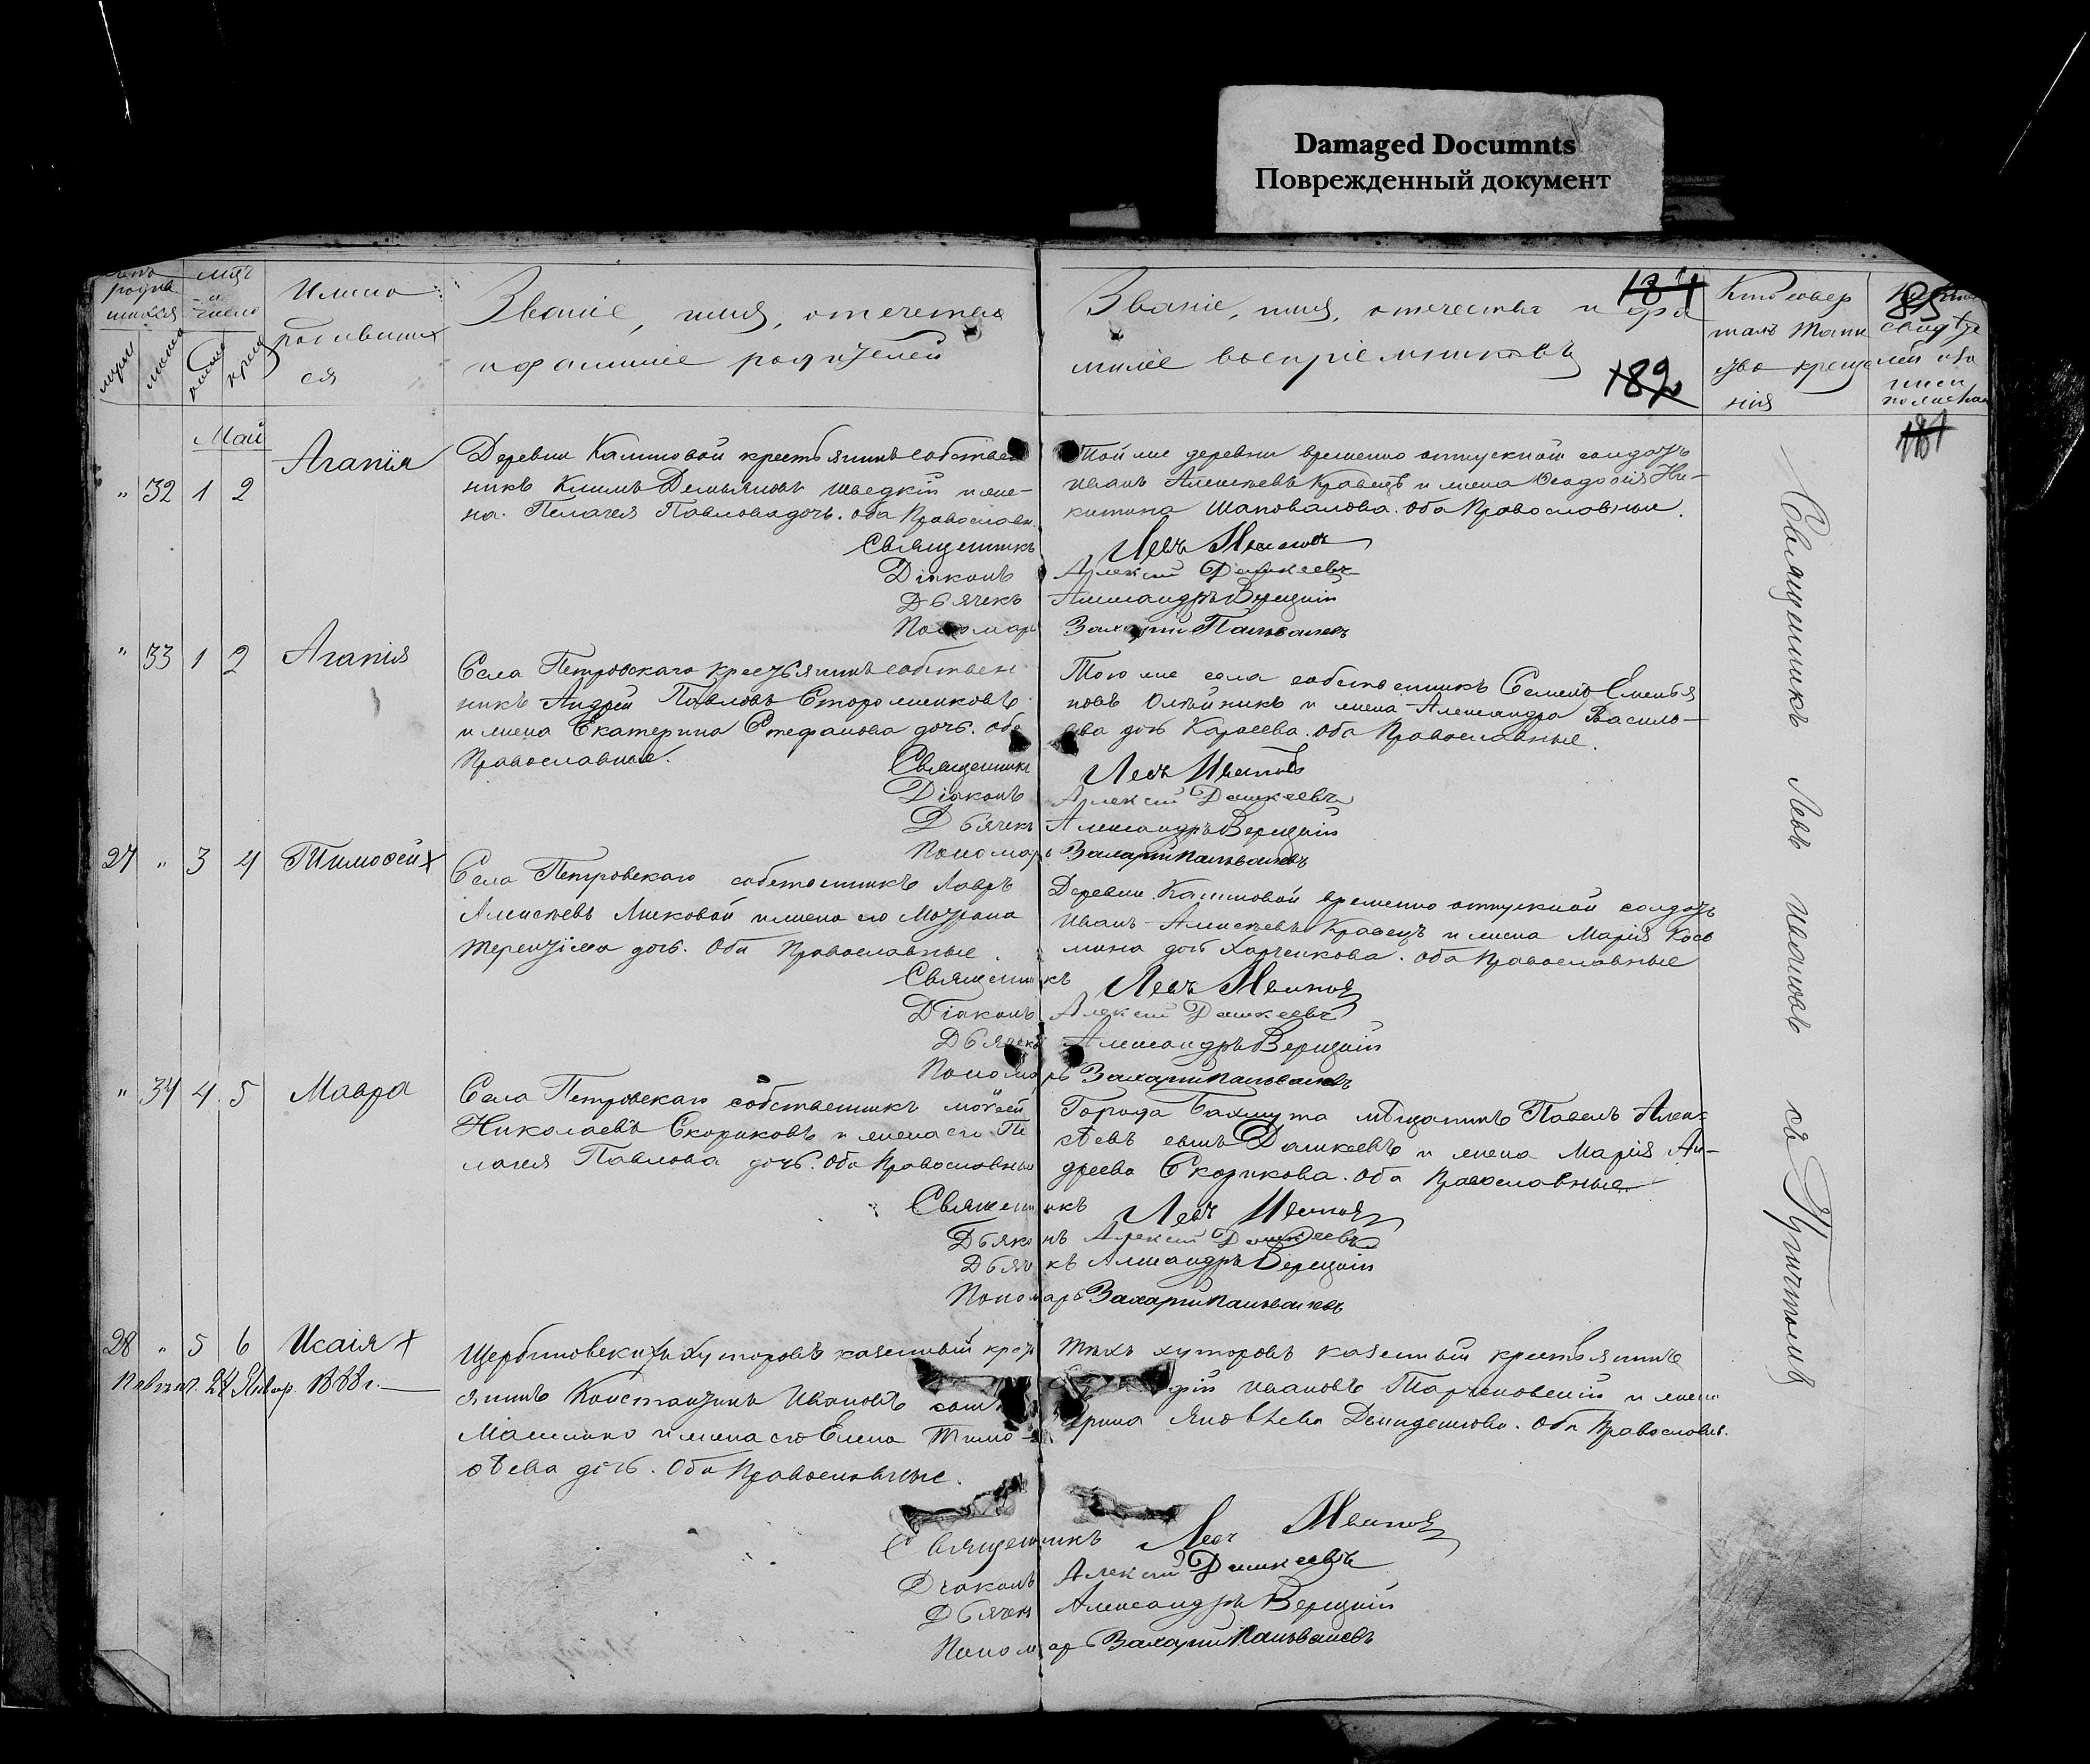 Damaged Documnts
Поврежденный документ
мцъ
и
число
Имена
родивших
ся
Званіе, имя, отечество
и фамиліе родителей
Званіе, имя, отечество и фа
миліе воспріемниковъ
184
189
Кто совер
шалъ таин
ство креще
нія
85
181
Май
" 32 1 2 Агапія
Деревни Калиновой крестьянинъ собствен
никъ Климъ Демьяновъ Шведкій и же-
на Пелагея Павлова дочь. оба Православн.
Той же деревни временно отпускной солдатъ
Иванъ Алексѣевъ Кравецъ и жена Ѳеодосія Ни-
китина Шаповалова. Оба Православные.
Священникъ Левъ Ивановъ
Діаконъ Алексій Дашкеевъ
Дьячекъ Александръ Верецкій
Пономарь Захарій
" 33 1 2 Агапія
Села Петровскаго крестьянинъ собствен
никъ Андрей Павловъ Стороженковъ
и жена Екатерина Стефанова дочь. оба
Православные.
Того же села собственникъ Семенъ Емелья
новъ Олѣйникъ и жена Александра Василь-
ева дочь Караева. Оба Православные.
Священникъ Левъ Ивановъ
Діаконъ Алексій Дашкеевъ
Дьячекъ Александръ Верецкій
Пономарь Захарій
27 " 3 4 Тимоѳей х
Села Петровскаго собственникъ Лавръ
Алексѣевъ и жена его Матрона
Терентіева дочь. Оба Православные.
Деревни Калиновой временно отпускной солдатъ
Иванъ Алексѣевъ Кравецъ и жена Марія Косо
мина дочь Харченкова. Оба Православные
Священникъ Левъ Ивановъ
Діаконъ Алексій Дашкеевъ
Дьячекъ Александръ Верецкій
Пономарь Захарій
" 34 4 5 Мавра
Села Петровскаго собственникъ Моѵсей
Николаевъ Скориковъ и жена его Пе
лагея Павлова дочь. Оба Православные
Города Бахмута мѣщанинъ Павелъ Алек-
сѣевъ сынъ Дашкеевъ и жена Марія Ан-
дреева Скорикова. Оба Православные.
Священникъ Левъ Ивановъ
Дьяконъ Алексій Дашкеевъ
Дьячекъ Александръ Верецкій
Пономарь Захарій
28 " 5 6 Исаія х
24 Январ. 1888 г.
Щербиновскихъ хуторовъ казенный крест
янинъ Константинъ Ивановъ сынъ
и жена его Елена Тимо-
ѳѣева дочь. Оба Православные.
Тѣхъ хуторовъ казенный крестьянинъ
Ивановъ и жена
Яковлева Демиденкова. Оба Православн.
Священникъ Левъ Ивановъ
Діаконъ Алексій Дашкеевъ
Дьячекъ Александръ Верецкій
Пономарь Захарій
Священникъ Левъ Ивановъ съ Причтомъ